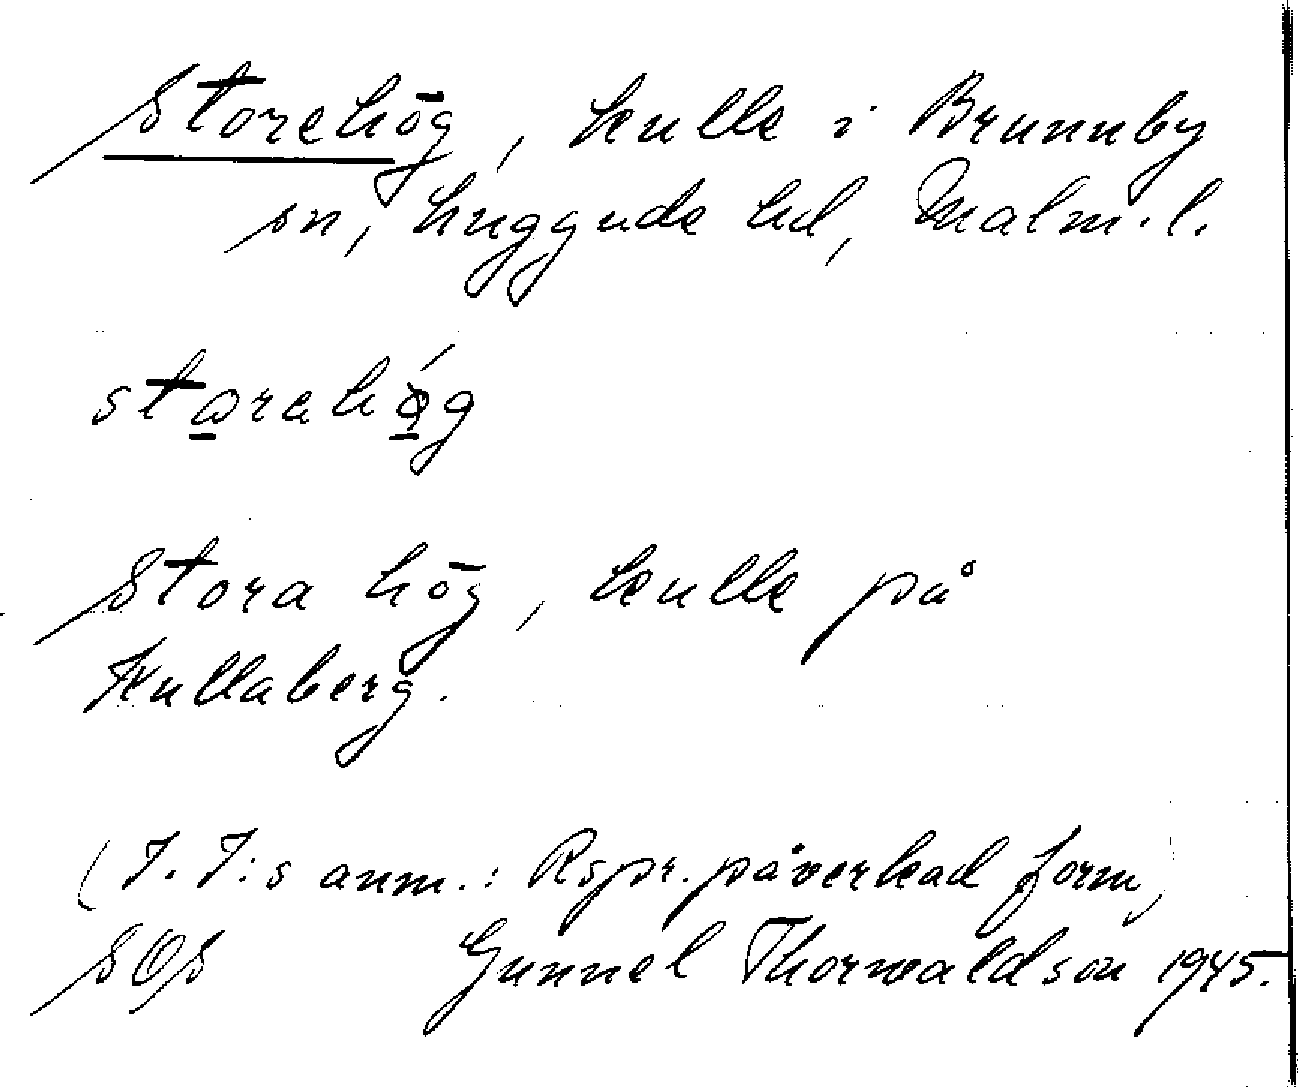 Storehög, kulle i Brunnby
sn, Luggude hd, Malm. l.
storehǿg
Stora hög, kulle på
Kullaberg.
(I. I:s anm.: Rspr. påverkad form)
SOS Gunnel Thorwaldson 1945.